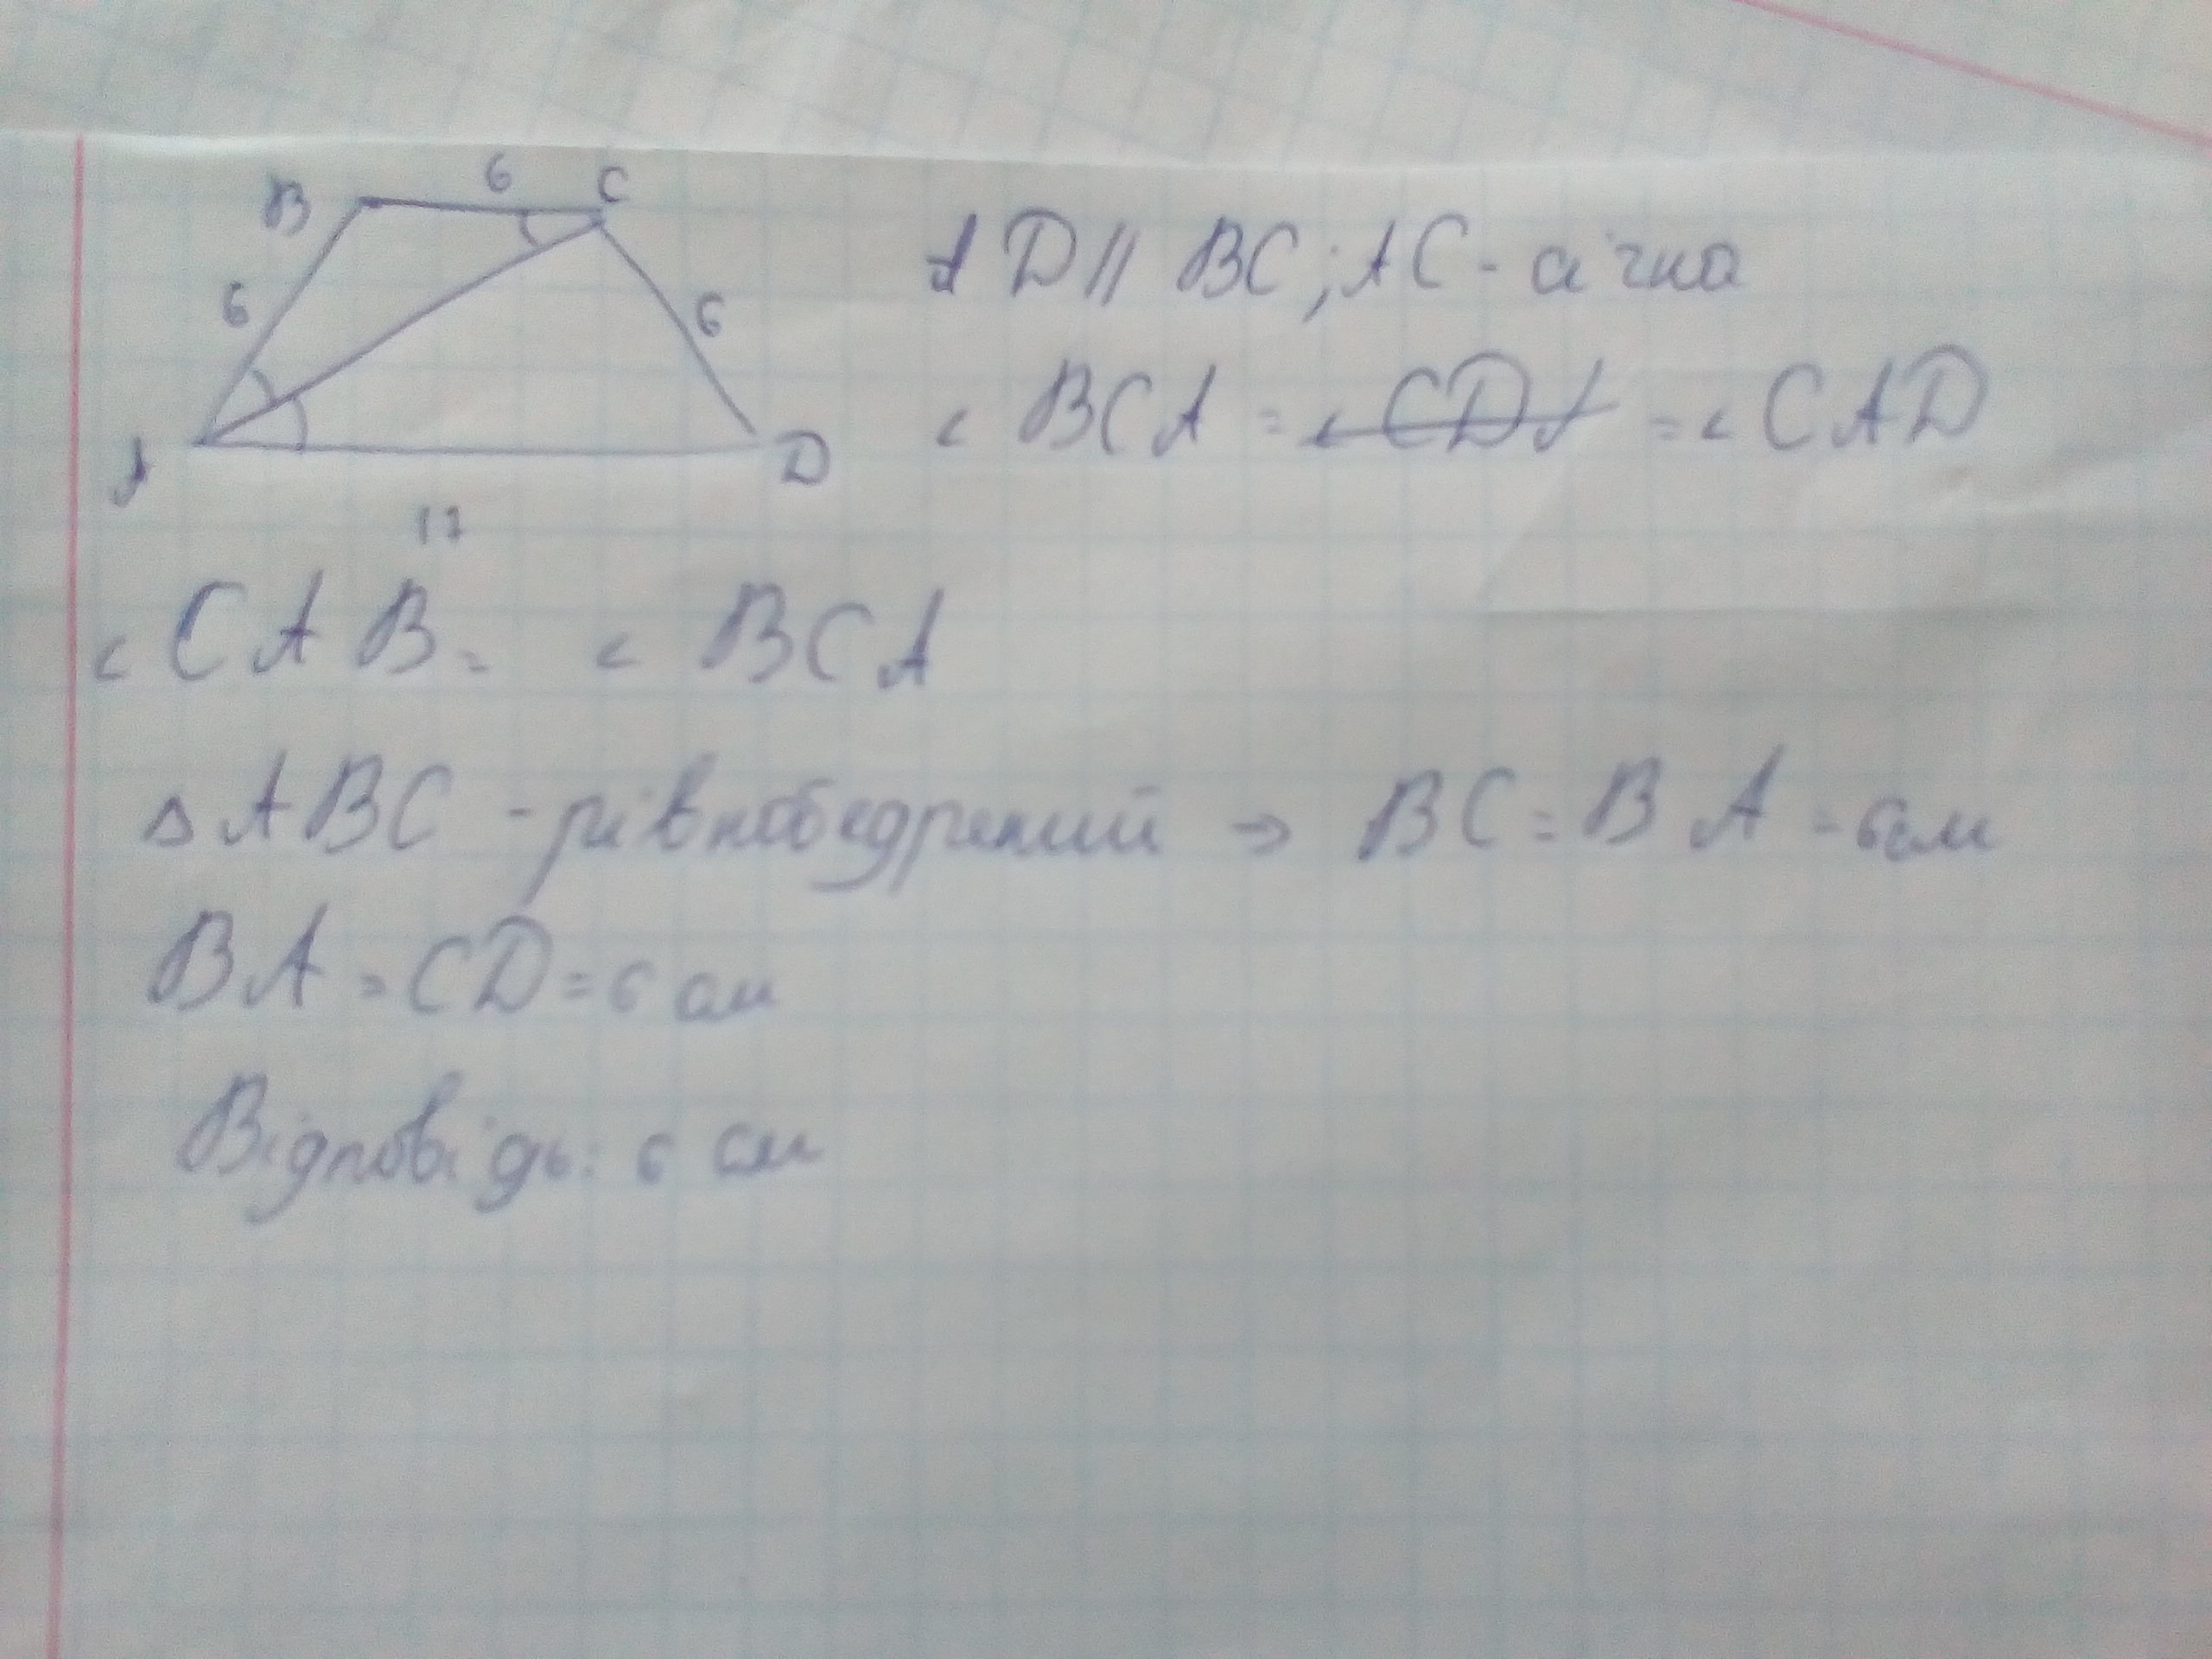 B 6 C
6 6
A D
17
AD || BC; AC - січна
< BCA = < CDA = < CAD
< CAB = < BCA
△ ABC - рівнобедрений → BC = BA = 6 см
BA = CD = 6 см
Відповідь: 6 см